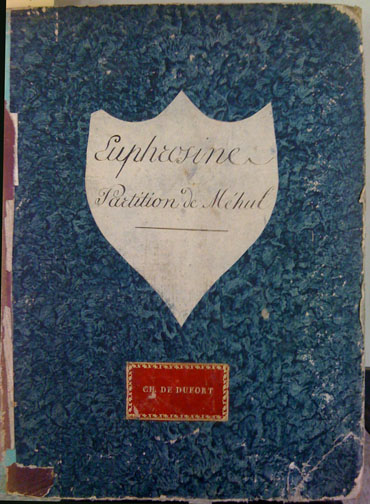 Euphrosine
Partition de Méhul
CH. DE DUFORT